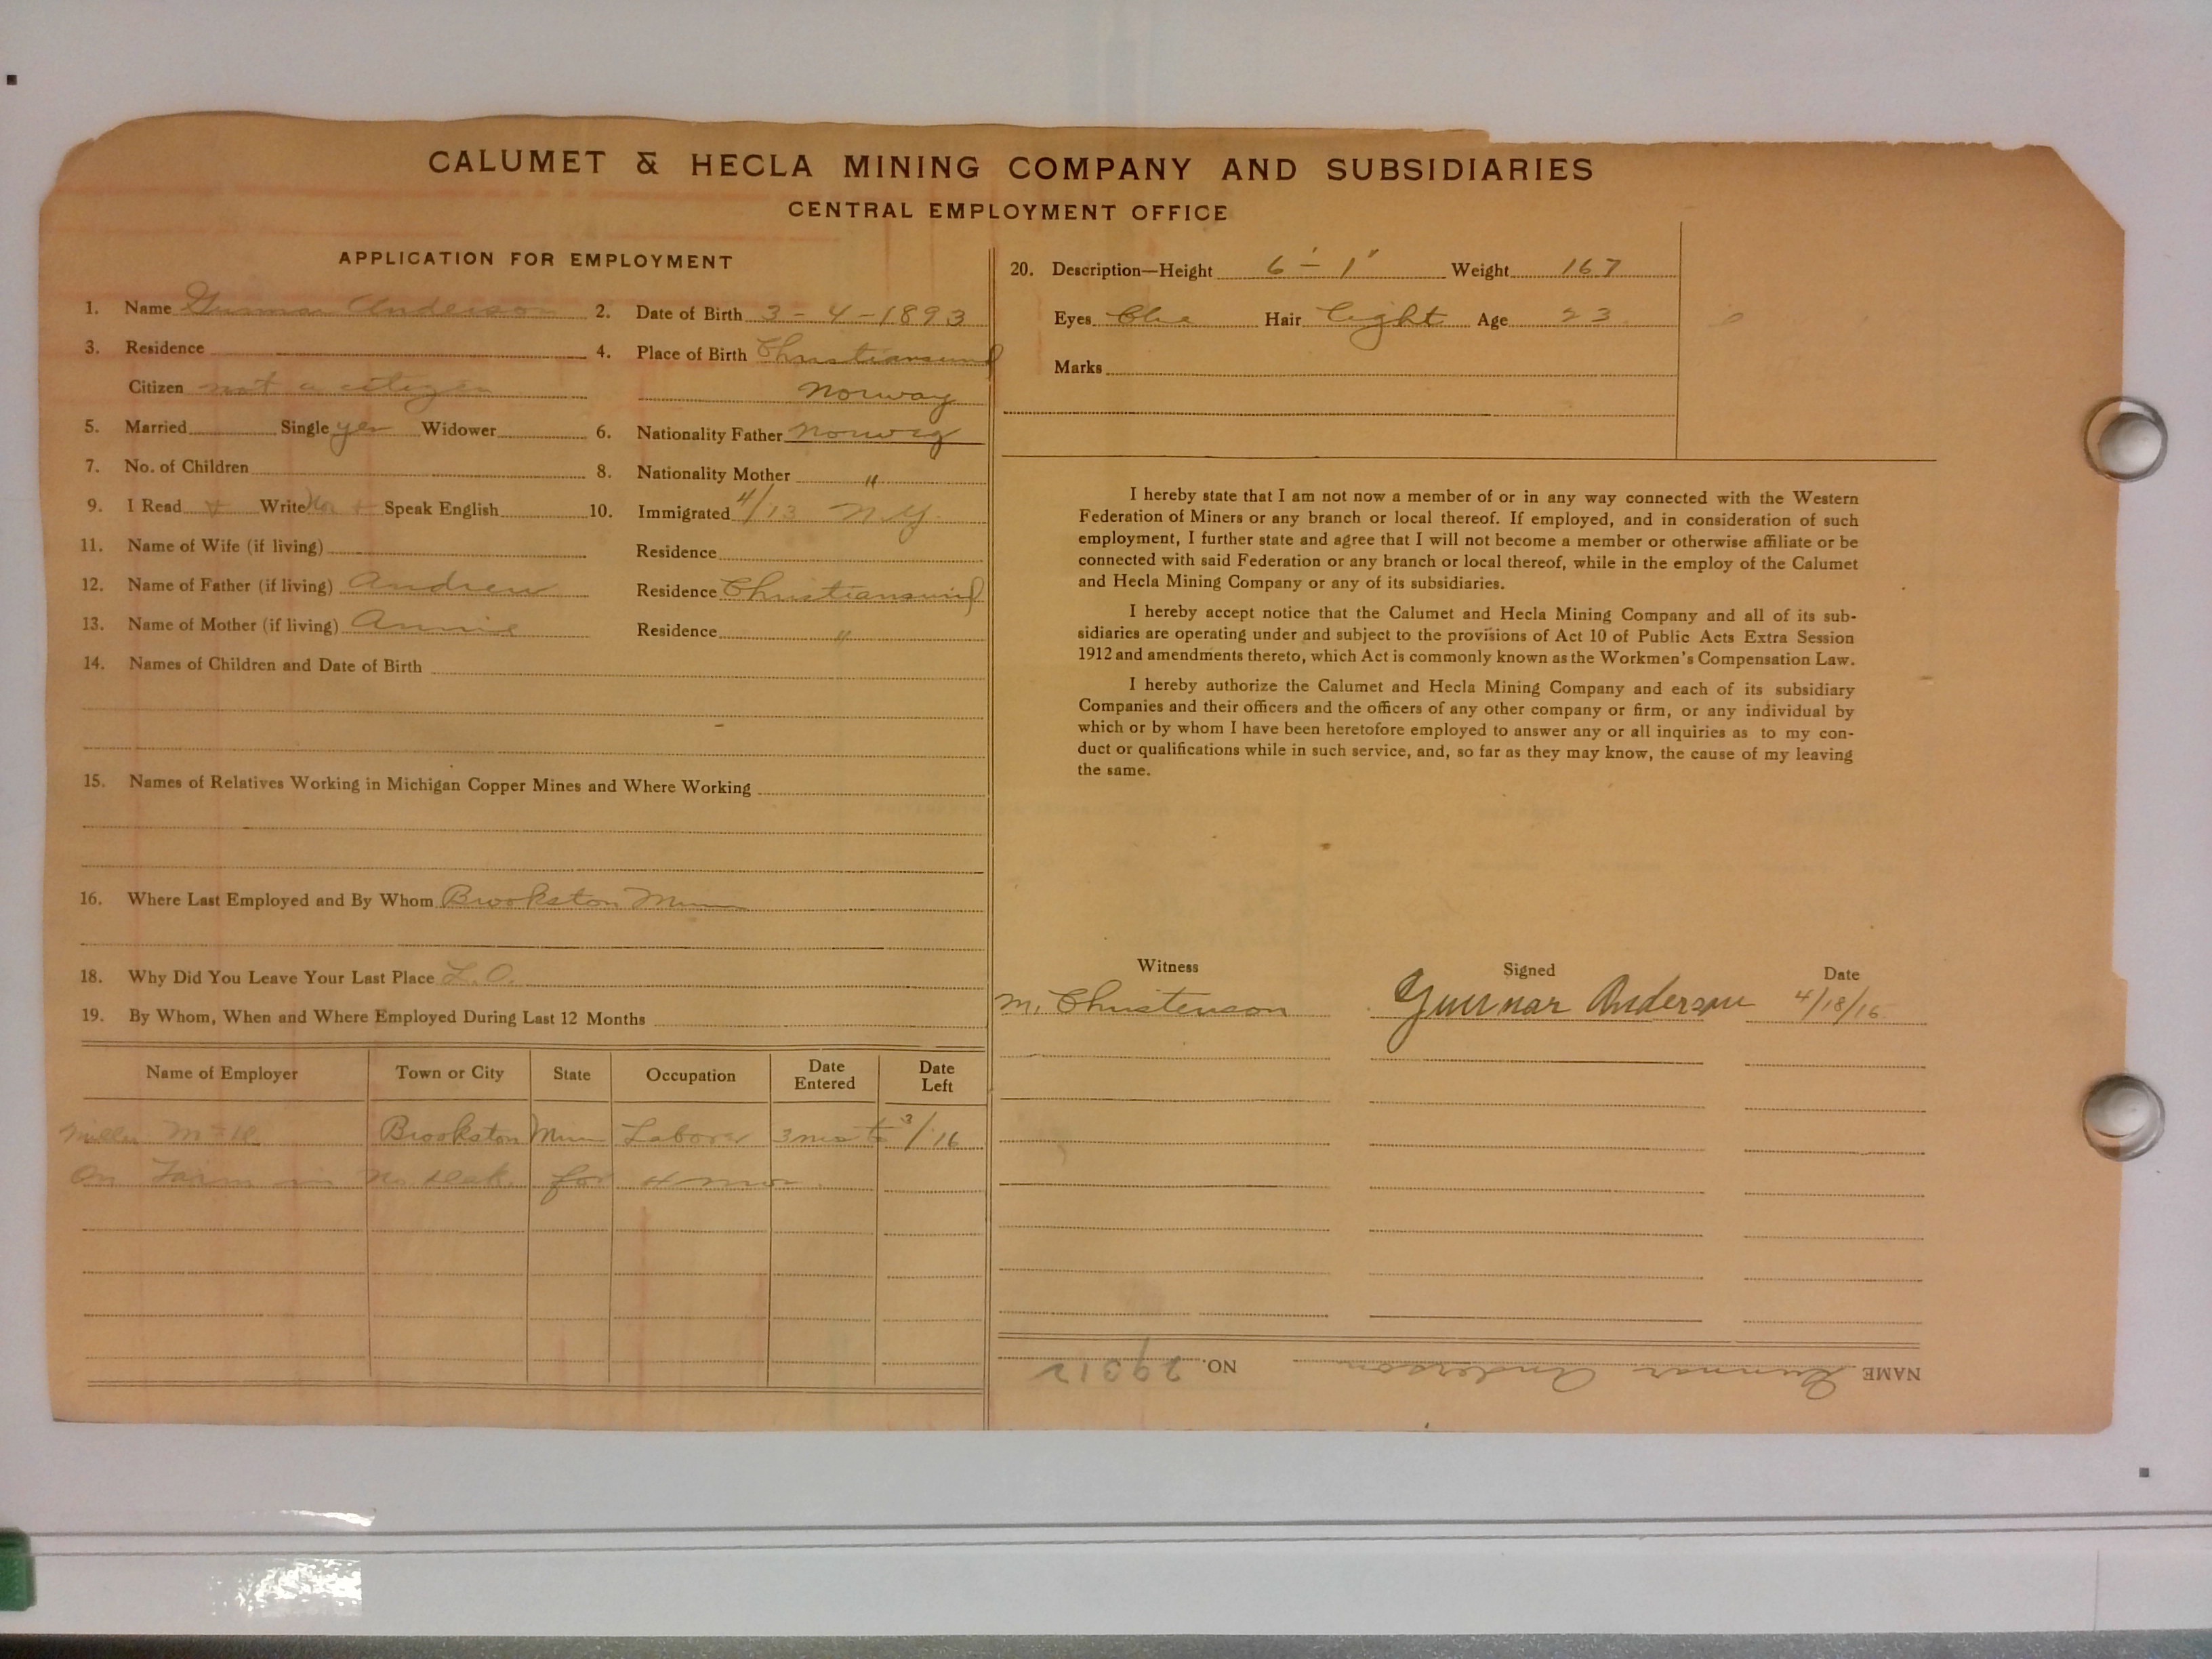 CALUMET & HECLA MINING COMPANY AND SUBSIDIARIES
CENTRAL EMPLOYMENT OFFICE
APPLICATION FOR EMPLOYMENT
1. Name Gunnar Anderson 2. Date of Birth 3-4-1893
3. Residence 4. Place of Birth Christiansund
Citizen not a citizen Norway
5. Married Single yes Widower 6. Nationality Father Norweg
7. No. of Children 8. Nationality Mother "
9. I Read Write Speak English 10. Immigrated 4/13 N.Y.
11. Name of Wife (if living) Residence
12. Name of Father (if living) Andrew Residence Christiansund
13. Name of Mother (if living) Annie Residence "
14. Names of Children and Date of Birth
15. Names of Relatives Working in Michigan Copper Mines and Where Working
16. Where Last Employed and By Whom Brookston Minn
18. Why Did You Leave Your Last Place L.O.
19. By Whom, When and Where Employed During Last 12 Months
Name of Employer Town or City State Occupation Date Entered Date Left
Miller Brookston Minn Laborer 3 mos to 3/16
On Farm in No Dak. for 4 mos.
20. Description—Height 6'-1" Weight 167
Eyes Blue Hair light Age 23
Marks
I hereby state that I am not now a member of or in any way connected with the Western
Federation of Miners or any branch or local thereof. If employed, and in consideration of such
employment, I further state and agree that I will not become a member or otherwise affiliate or be
connected with said Federation or any branch or local thereof, while in the employ of the Calumet
and Hecla Mining Company or any of its subsidiaries.
I hereby accept notice that the Calumet and Hecla Mining Company and all of its sub-
sidiaries are operating under and subject to the provisions of Act 10 of Public Acts Extra Session
1912 and amendments thereto, which Act is commonly known as the Workmen's Compensation Law.
I hereby authorize the Calumet and Hecla Mining Company and each of its subsidiary
Companies and their officers and the officers of any other company or firm, or any individual by
which or by whom I have been heretofore employed to answer any or all inquiries as to my con-
duct or qualifications while in such service, and, so far as they may know, the cause of my leaving
the same.
Witness Signed Date
M. Christenson Gunnar Anderson 4/18/16
NAME Gunnar Anderson NO. 29312